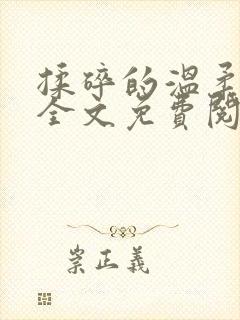 揉碎的温柔
全文免費閱
崇正義